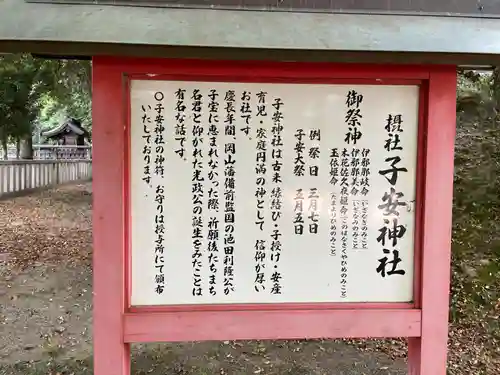 摂社 子安神社
御祭神
伊邪那岐命(いざなぎのみこと)
伊邪那美命(いざなみのみこと)
木花佐久夜姫命(このはなさくやひめのみこと)
玉依姫命(たまよりひめのみこと)
例祭日 三月七日
子安大祭 五月五日
子安神社は古来、縁結び・子授け・安産
育児・家庭円満の神として 信仰が厚い
お社です。
慶長年間、岡山藩備前監国の池田利隆公が
子宝に恵まれなかった際、祈願後たちまち
名君と仰がれた光政公の誕生をみたことは
有名な話です。
〇子安神社の神符、お守りは授与所にて頒布
いたしております。